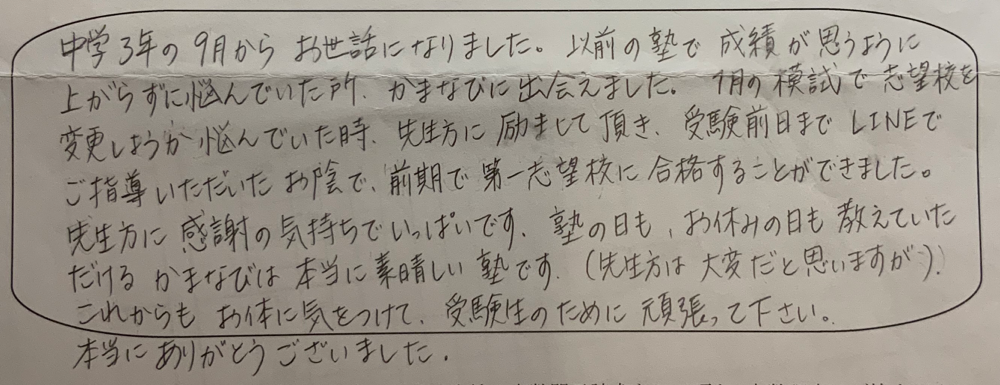 中学3年の9月から お世話になりました。以前の塾で 成績が思うように
上がらずに悩んでいた所、かまなびに出会えました。1月の模試で志望校を
変更しようか悩んでいた時、先生方に励まして頂き、受験前日までLINEで
ご指導いただいた お陰で、前期で第一志望校に合格することができました。
先生方に感謝の気持ちでいっぱいです。塾の日も、お休みの日も教えていた
だける かまなびは 本当に素晴しい塾です。(先生方は大変だと思いますが:).
これからも お体に気をつけて、受験生のために頑張って下さい。
本当にありがとうございました.